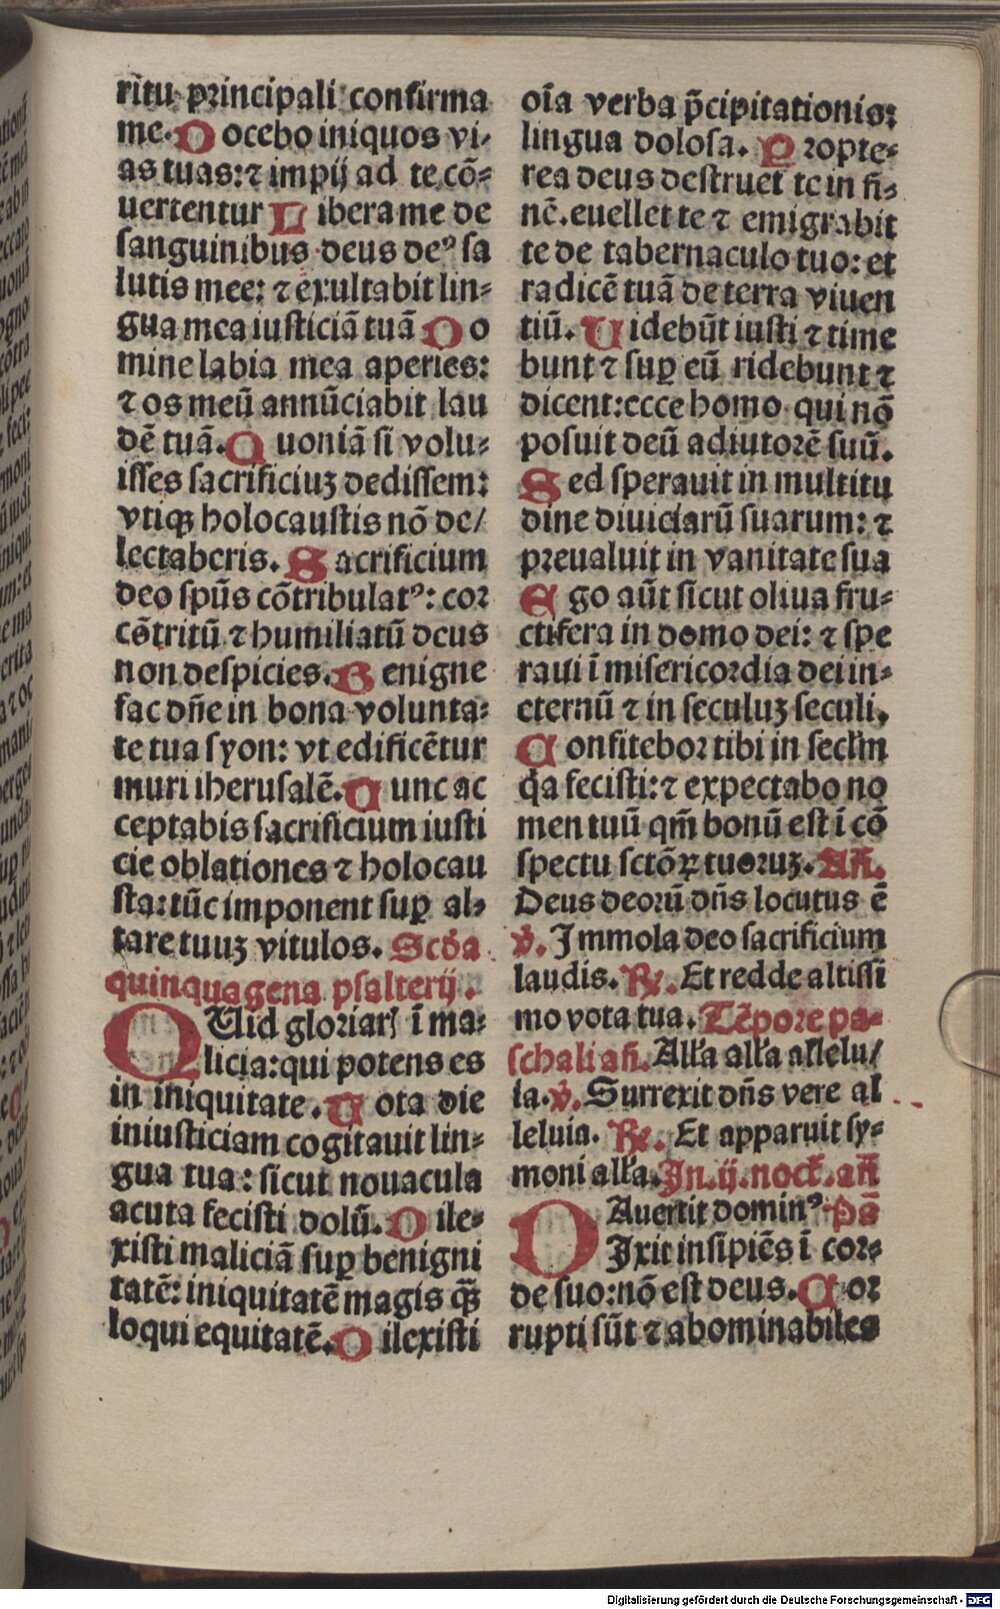 ritu principali confirma
me. Docebo iniquos vi-
as tuas: ⁊ impij ad te cō-
uertentur Libera me de
sanguinibus deus deꝰ sa
lutis mee: ⁊ exultabit lin-
gua mea iusticiā tuā Do
mine labia mea aperies:
⁊ os meū annūciabit lau
dē tuā. Quoniā si volu-
isses sacrificiuꝫ dedissem:
vtiqꝫ holocaustis nō de/
lectaberis. Sacrificium
deo spūs cōtribulatꝰ: cor
cōtritū ⁊ humiliatū deus
non despicies. Benigne
fac dn̄e in bona volunta-
te tua syon: vt edificētur
muri iherusalē. Tunc ac
ceptabis sacrificium iusti
cie oblationes ⁊ holocau
sta: tūc imponent suꝑ al-
tare tuuꝫ vitulos. Scd̄a
quinquagena psalterij.
QUid gloriarꝭ ī ma-
licia: qui potens es
in iniquitate. Tota die
iniusticiam cogitauit lin-
gua tua: sicut nouacula
acuta fecisti dolū. Dile-
xisti maliciā suꝑ benigni
tatē: iniquitatē magis qꝫ̄
loqui equitatē. Dilexisti
oīa verba p̄cipitationis:
lingua dolosa. Propte-
rea deus destruet te in fi-
nē. euellet te ⁊ emigrabit
te de tabernaculo tuo: et
radicē tuā de terra viuen
tiū. Uidebūt iusti ⁊ time
bunt ⁊ suꝑ eū ridebunt ⁊
dicent: ecce homo qui nō
posuit deū adiutorē suū.
Sed sperauit in multitu
dine diuiciarū suarum: ⁊
preualuit in vanitate sua
Ego aūt sicut oliua fru-
ctifera in domo dei: ⁊ spe
raui ī misericordia dei in-
eternū ⁊ in seculuꝫ seculi.
Confitebor tibi in secl̄m
q̄a fecisti: ⁊ expectabo no
men tuū qm̄ bonū est ī cō
spectu sctōꝝ tuoruꝫ. Añ.
Deus deorū dn̄s locutus ē
v̄. Immola deo sacrificium
laudis. ℟. Et redde altissi
mo vota tua. Tēpore pa-
schali añ. Alľa alľa allelu/
ia. v̄. Surrexit dn̄s vere al
leluia. ℟. Et apparuit sy-
moni alľa. In .ij. noct̄. añ
Auertit dominꝰ. Ps̄
DIxit insipiēs ī cor-
de suo: nō est deus. Cor
rupti sūt ⁊ abominabiles
Digitalisierung gefördert durch die Deutsche Forschungsgemeinschaft - DFG